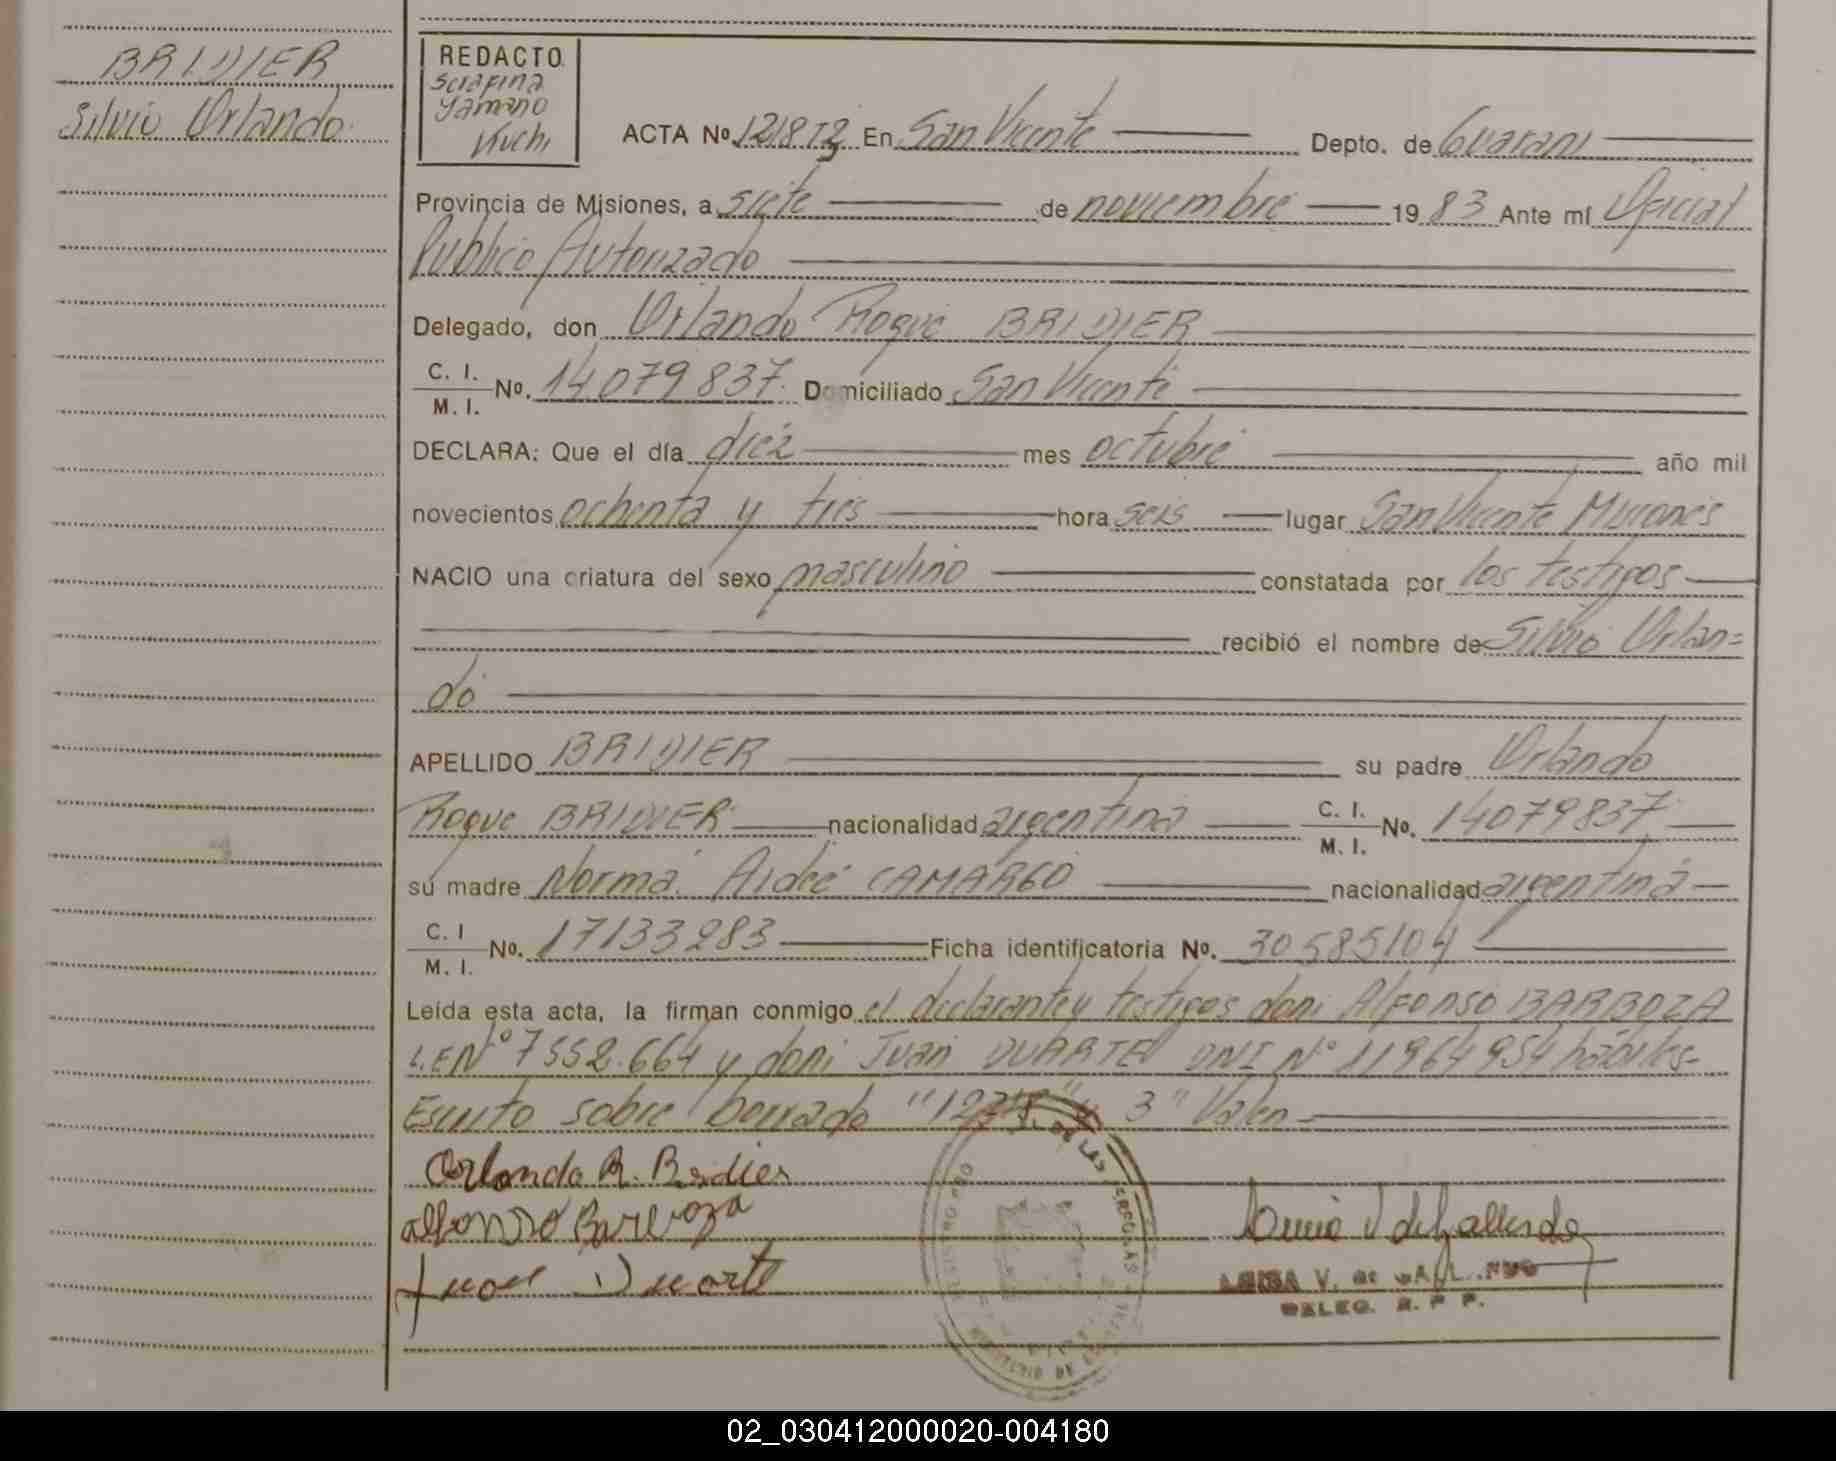 BRIDIER
Silvio Orlando
REDACTO
Serafina
Yamano
Kuchi
ACTA Nº En San Vicente Depto. de Guarani
Provincia de Misiones, a siete de noviembre 1983 Ante mí Oficial
Publico Autorizado
Delegado, don Orlando Roque BRIDIER
C. I.
M. I. Nº. 14079837. Domiciliado San Vicente
DECLARA: Que el día diez mes octubre año mil
novecientos ochenta y tres hora seis lugar San Vicente Misiones
NACIO una criatura del sexo masculino constatada por los testigos
recibió el nombre de Silvio Orlan=
do
APELLIDO BRIDIER su padre Orlando
Roque BRIDIER nacionalidad argentina C. I.
M. I. Nº. 14079837
su madre Norma Aidee CAMARGO nacionalidad argentina
C. I
M. I. Nº. 17133283 Ficha identificatoria Nº. 30585104
Leída esta acta, la firman conmigo el declarante y testigos don: Alfonso BARBOZA
L.E Nº 7552.664 y don: Juan DUARTE DNI Nº 11964954 hábiles-
Escrito sobre borrado " 3" Valen-
Orlando R. Bridier
alfonso Barboza
Juan Duarte
LUISA V. de GALLARDO
DELEG. R. P P.
02_030412000020-004180